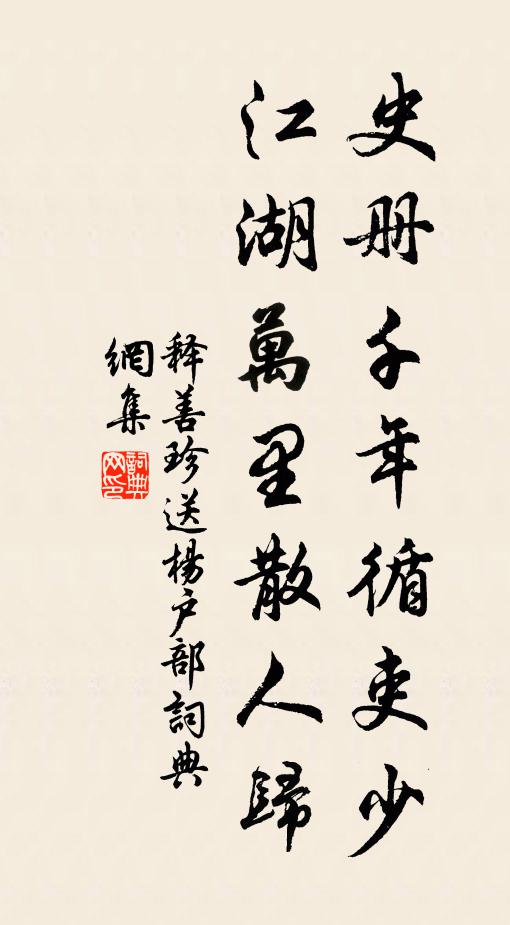 史册千年循吏少
江湖萬里散人歸
释善珍送楊户部詞典
網集
詞典网印